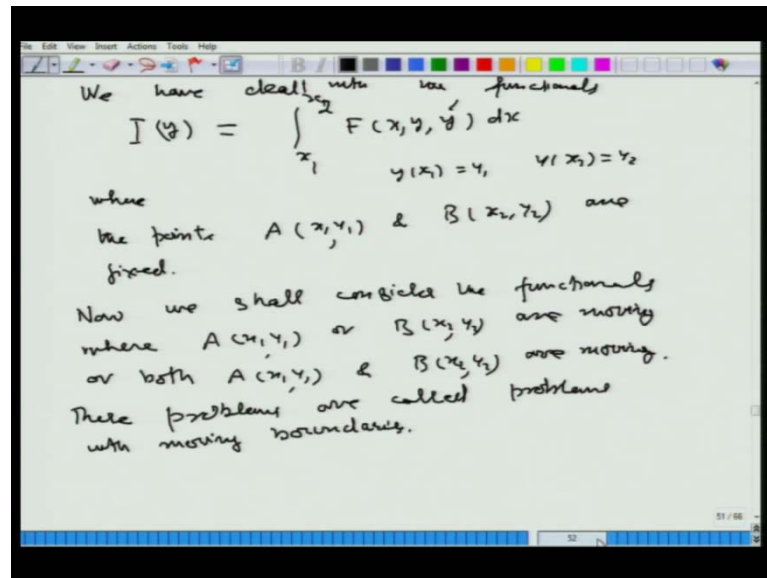 File Edit View Insert Actions Tools Help
B I
We have dealt with the functionals
I(y) = ∫_{x_1}^{x_2} F(x, y, y') dx
y(x_1) = y_1 y(x_2) = y_2
where
the points A(x_1, y_1) & B(x_2, y_2) are
fixed.
Now we shall consider the functionals
where A(x_1, y_1) or B(x_2, y_2) are moving
or both A(x_1, y_1) & B(x_2, y_2) are moving.
These problems are called problems
with moving boundaries.
51 / 66
52